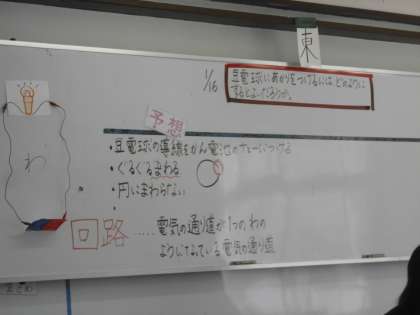 東
1/16
豆電球にあかりをつけるには、どのように
するとよいだろうか。
予想
・豆電球の導線をかん電池の につける
・ぐるぐるまわる
・円にまわらない
・
わ
回路 ....電気の通り道が1つのわの
ようになっている電気の通り道
まとめ